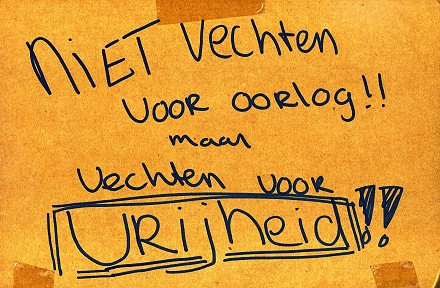 NIET Vechten
VOOR OORLOG!!
maar
Vechten VOOR
VRijheid!!